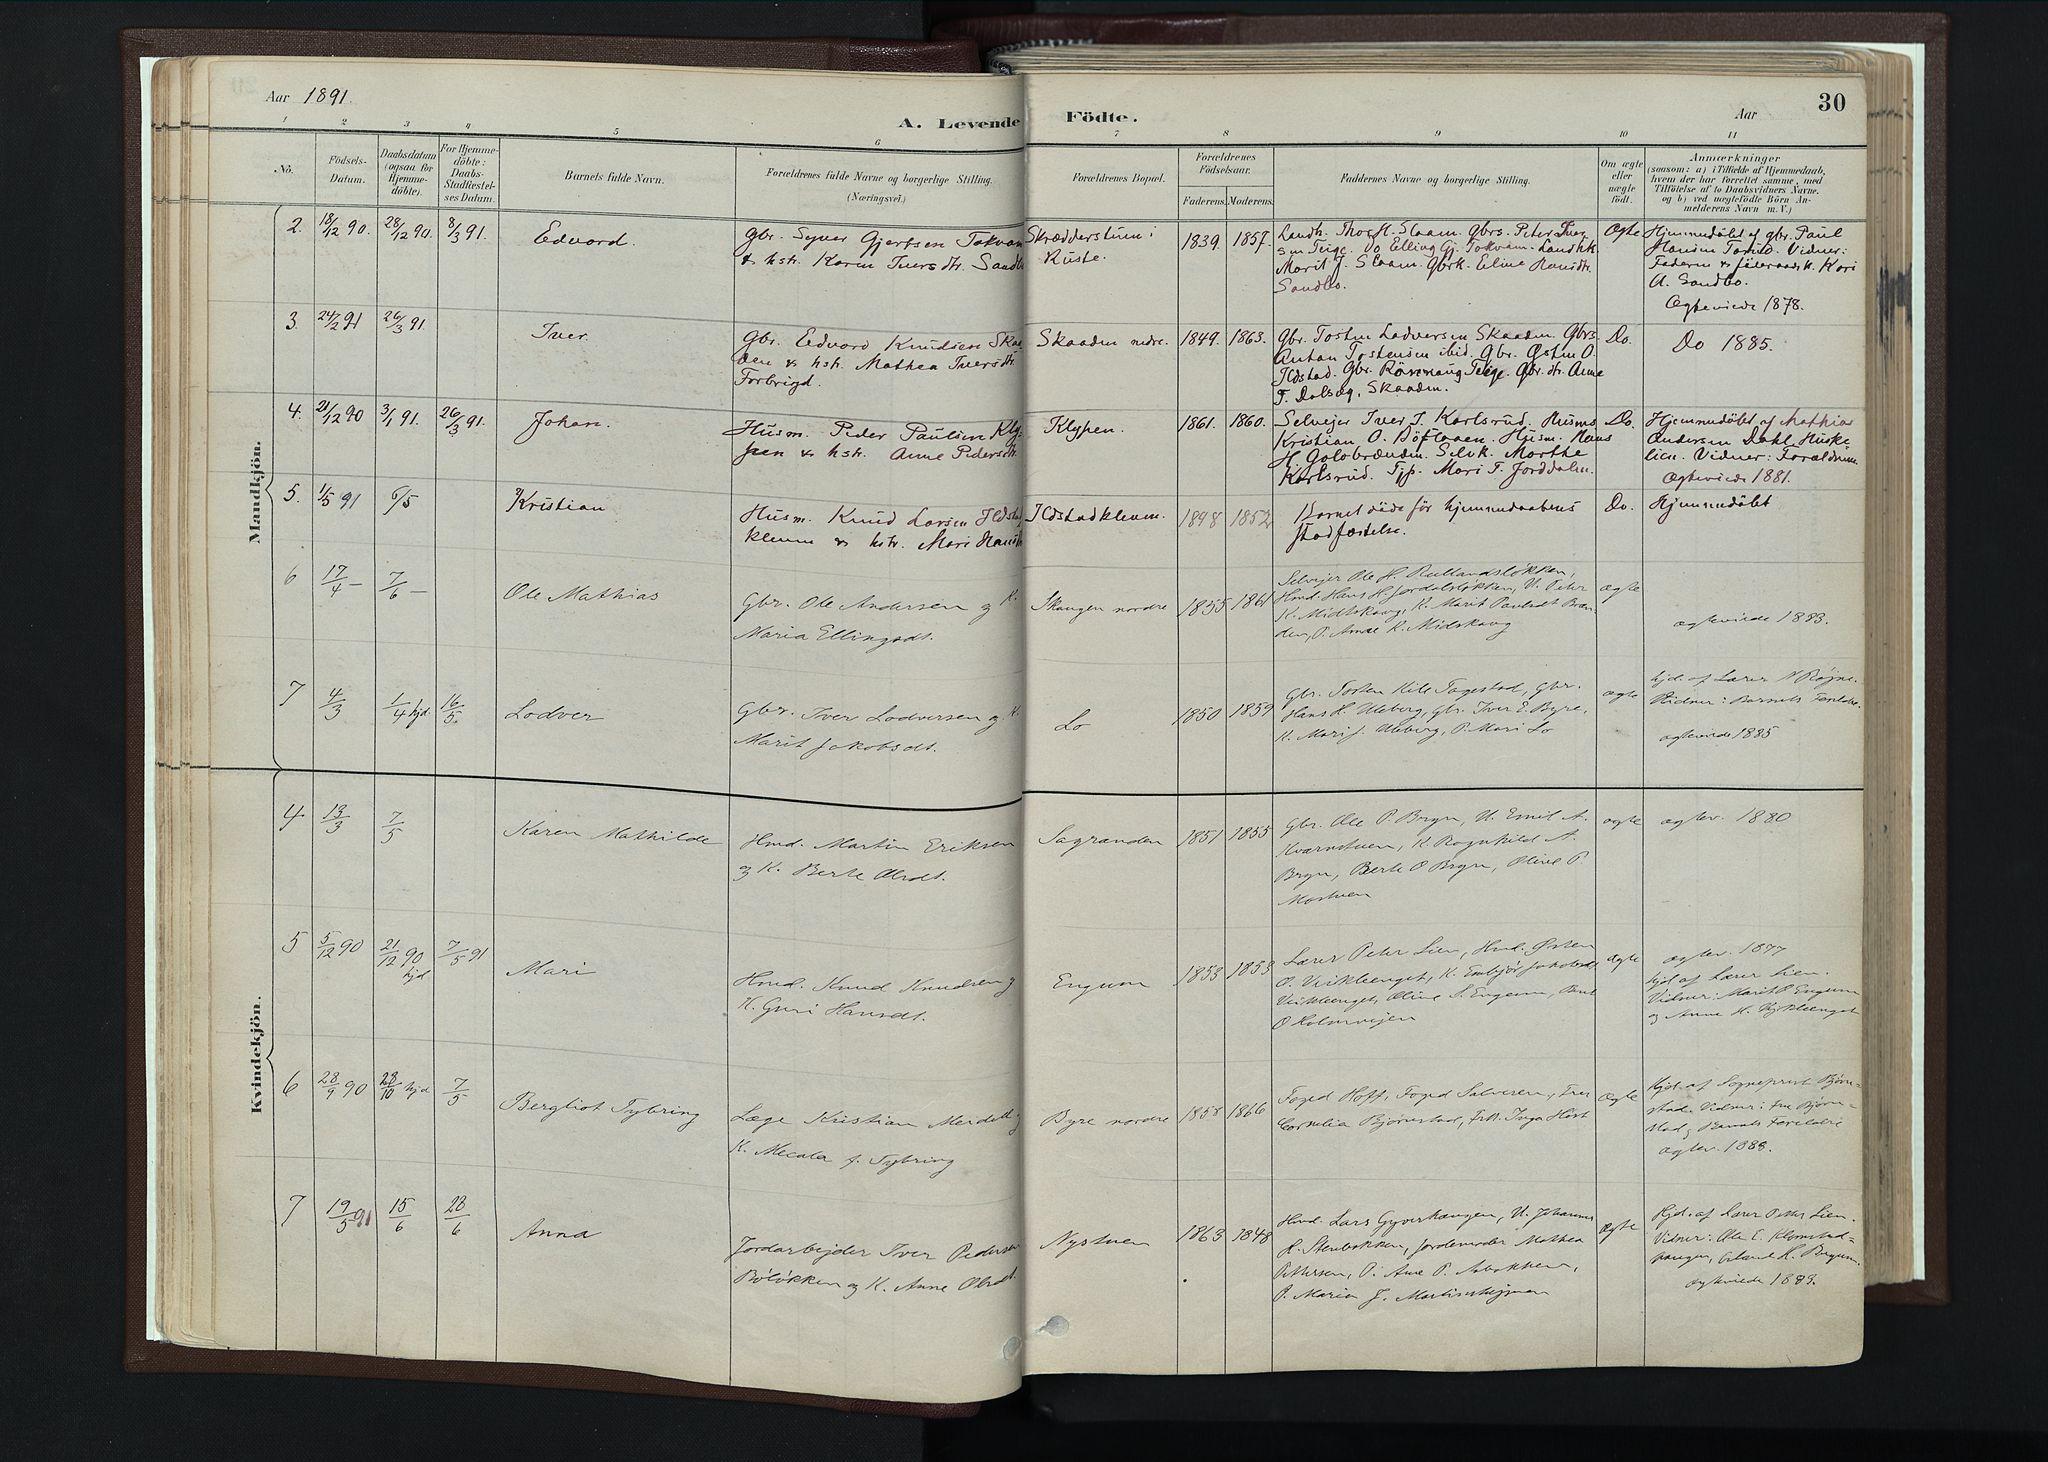 Aar 1891.
A. Levende Födte.
Aar
30
1 2 3 4 5 6 7 8 9 10 11
No.
Födsels-Datum.
Daabsdatum (ogsaa for Hjemmedöbte).
For Hjemmedöbte: Daabs-Stadfæstelses Datum.
Barnets fulde Navn.
Forældrenes fulde Navne og borgerlige Stilling.
(Næringsvei.)
Forældrenes Bopæl.
Forældrenes Födselsaar.
Faderens. Moderens.
Faddernes Navne og borgerlige Stilling.
Om ægte eller uægte födt.
Anmærkninger
(saasom: a) i Tilfælde af Hjemmedaab, hvem der har forrettet samme, med Tilföielse af to Daabsvidners Navne, og b) ved uægtefödte Börn Anmelderens Navn m. V.)
Mandkjön.
2. 18/12 90. 28/12 90. 8/3 91. Edvard.
Gbr. Syver Gjertsen Tokvam
& hstr. Karen Iversdtr. Sandbo
Skrædderstuen i
Ruste.
1839. 1857.
Elling Gj. Tokvam.
Marit J. Slaam. Gbrk. Eline Hansdtr.
Sandbo.
Ægte
Hjemmedöbt af gbr. Paul
Hansen Vidner:
Faderen & føderaadsk. Kari
A. Sandbo.
Ægteviede 1878.
3. 24/2 91 26/3 91. Iver.
Gbr. Edvard Knudsen Skaa-
den & hstr. Mathea Iversdtr.
Forbrigd.
Skaaden nedre.
1849. 1863.
Gbr. Tosten Lodversen Skaaden. Gbrs.
Anton Tostensen ibid. Gbr. Østen O.
Ildstad. Gbr. Rönnaug Teige. Gbr. dtr. Anne
T. Dalseg, Skaaden.
Do.
Do 1885.
4. 21/12 90 3/1 91. 26/3 91. Johan.
Husm. Peder Paulsen Kly-
pen & hstr. Anne Pedersdtr.
Klypen.
1861. 1860.
Selvejer Iver J. Karlsrud. Husms
Kristian O. Husm. Hans
H. Golobrænden. Selvk. Marthe
Karlsrud. Tjp. Mari T. Jorddalen.
Do.
Hjemmedöbt af Mathias
Andersen Dahl, Huske-
lien. Vidner: Forældrene.
Ægteviede 1881.
5. 1/5 91 6/5 Kristian
Husm. Knud Larsen Ildstad
klemm & hstr. Mari Hansdtr.
Ildstadklemm.
1848 1852
Barnet döde för hjemmedaabens
stadfæstelse.
Do.
Hjemmedöbt
6 17/4 – 7/6 – Ole Mathias
Gbr. Ole Andersen og K.
Maria Ellingsdt.
Skaugen nordre
1855 1861
Selvejer Ole H. Rullandsløkken,
Hmd. Hans H. Jordalsløkken, U. Peter
K. Midtskaug, K. Marit Paulsdt Bræn-
den, P. Anne K. Midskaug
ægte
ægteviede 1883.
7 4/3 1/4 hjd. 16/5. Lodver
Gbr. Iver Lodversen og K.
Marit Jakobsdt.
Lo
1850 1859
Gbr. Tosten Kile Tagestad, Gbr.
Hans H. Uleberg, Gbr. Iver E. Byre,
K. Mari J. Uleberg, P. Mari Lo
ægte
hjd. af Lærer
Vidner: Barnets Foreldre.
ægteviede 1885
Kvindekjön.
4 13/3 7/5 Karen Mathilde
Hmd. Martin Eriksen
og K. Berte Olsdt.
Sagranden
1851 1855
Gbr. Ole P. Bryn, U. Emil A.
Kværnstuen, K. Ragnhild A.
Bryn, Berte O Bryn, Oline P.
Mostuen
ægte
ægtev. 1880
5 5/12 90 21/12 90 hjd 7/5 91 Mari
Hmd. Knud Knudsen og
K. Guri Hansdt.
Engum
1853 1853
Lærer Peter Lien, Hmd. Østen
O. Veikleenget, K. Embjör Jakobsdt
Veikleenget, Oline S. Engum, Berte
O Holmveien
ægte
ægtev. 1877
hjd af Lærer Lien.
Vidner: Marit O Engum
og Anne H. Vejkleenget
6 28/9 90 28/10 hjd 7/5 Bergliot Tybring
Læge Kristian Meidell og
K. Mecala f. Tybring
Byre nordre
1858 1866
Foged Hoff, Foged Salvesen, Frue
Cornelia Bjørnstad, Frk. Inga Hoff
Ægte
Hjd. af Sogneprest Bjørn-
stad. Vidner: Fru Bjørn-
stad, Barnets Foreldre
ægtev. 1888.
7 19/5 91 15/6 28/6 Anna
Jordarbejder Iver Pedersen
Böløkken og K. Anne Olsdt.
Nystuen
1863 1848
Hmd. Lars Gyverhaugen, U. Johannes
H. Stenbakken, Jordemoder Mathea
Pettersen, P. Anne P. Aabakken,
P. Maria J.
Ægte
Hjd. af Lærer Petter Lien.
Vidner: Ole E. Klomstad-
haugen, Erland H. Bryum.
ægteviede 1889.